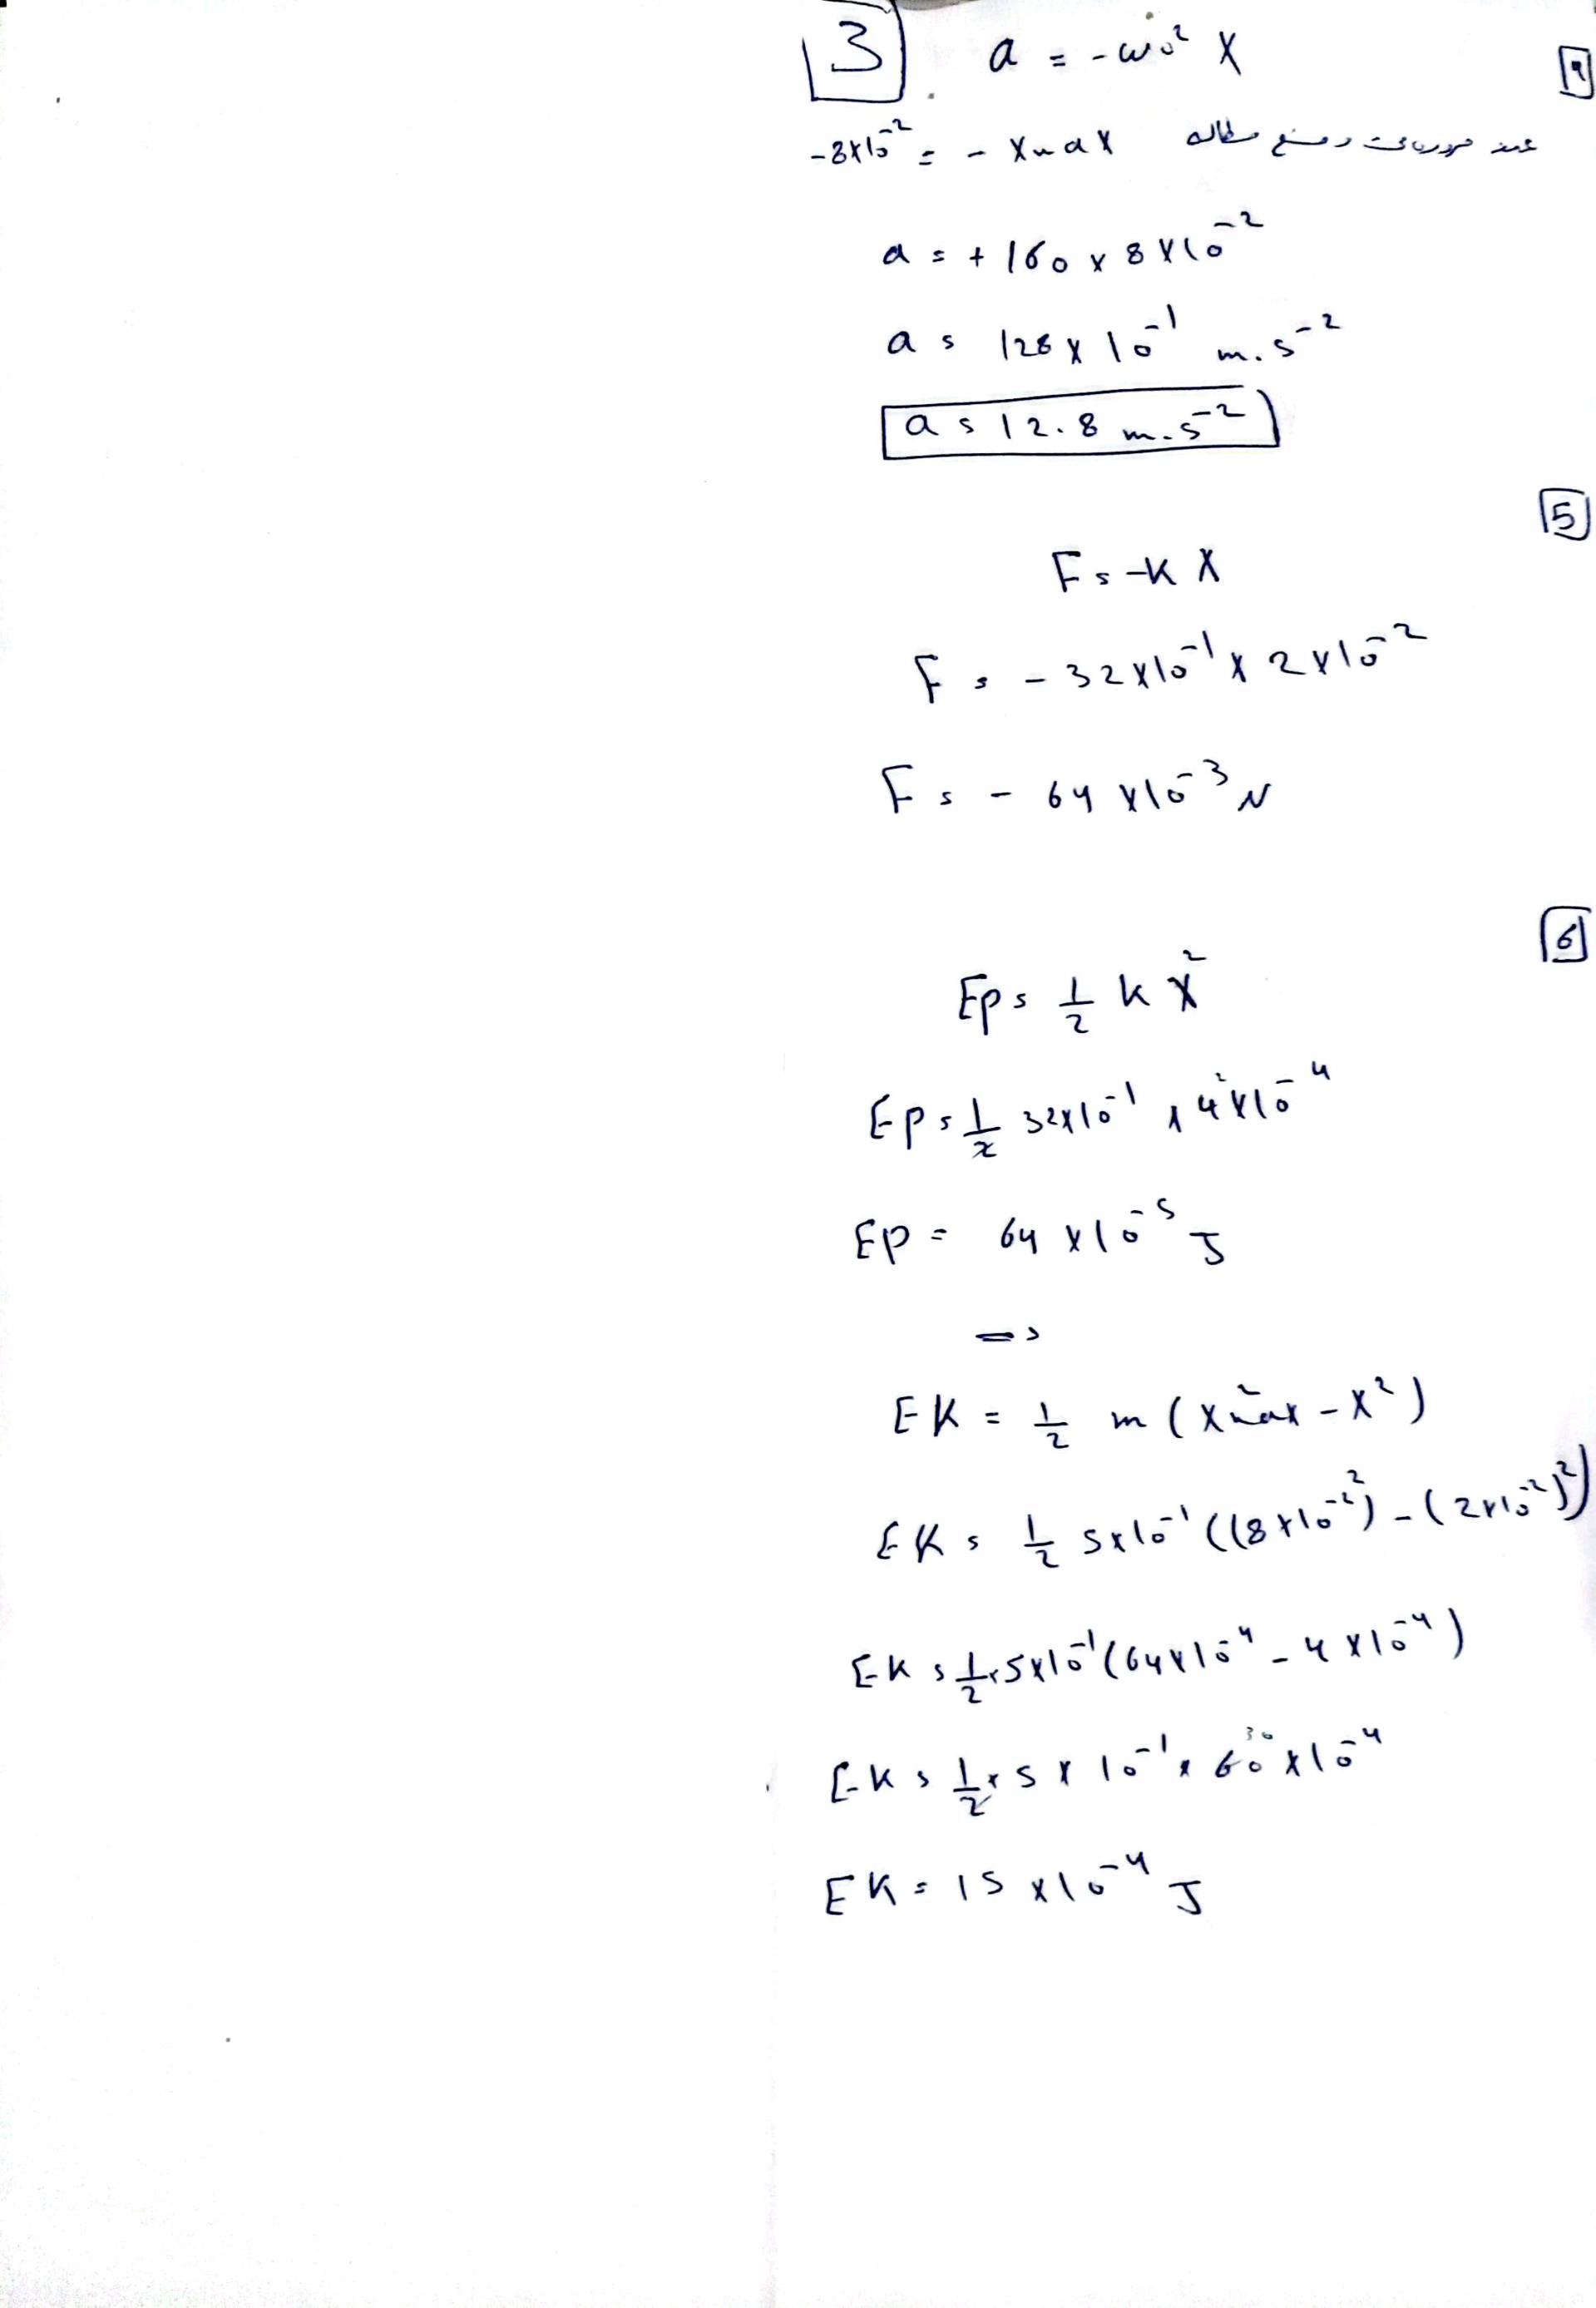 3
a = -ω₀² X
4
-8×10⁻² = - Xmax عند مروره في وضع مطاله
a = + 160 × 8×10⁻²
a = 128 × 10⁻¹ m.s⁻²
a = 12.8 m.s⁻²
5
F = -K X
F = - 32×10⁻¹ × 2×10⁻²
F = - 64 ×10⁻³ N
6
Ep = 1/2 k X²
Ep = 1/2 32×10⁻¹ × 4×10⁻⁴
Ep = 64 ×10⁻⁵ J
=>
EK = 1/2 m (X²max - X²)
EK = 1/2 5×10⁻¹ ((8×10⁻²)² - (2×10⁻²)²)
EK = 1/2 × 5×10⁻¹ (64×10⁻⁴ - 4×10⁻⁴)
EK = 1/2 × 5 × 10⁻¹ × 60 ×10⁻⁴
EK = 15 ×10⁻⁴ J